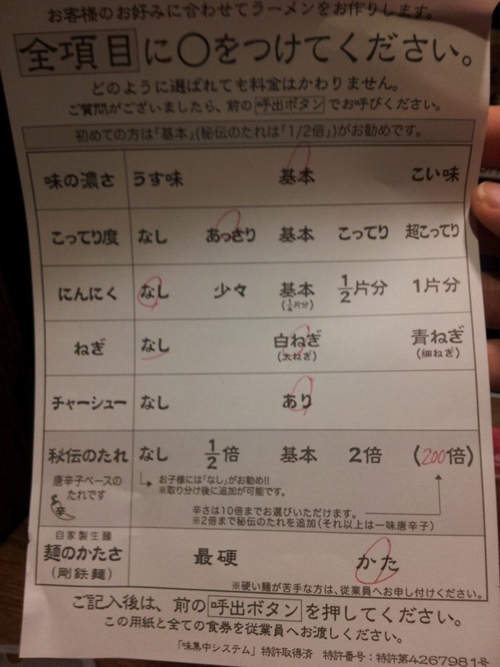 お客様のお好みに合わせてラーメンをお作りします。
全項目に〇をつけてください。
どのように選ばれても料金はかわりません。
ご質問がございましたら、前の呼出ボタンでお呼びください。
初めての方は「基本」(秘伝のたれは「1/2倍」)がお勧めです。
味の濃さ うす味 基本 こい味
こってり度 なし あっさり 基本 こってり 超こってり
にんにく なし 少々 基本 1/2片分 1片分
(1/4片分)
ねぎ なし 白ねぎ 青ねぎ
(太ねぎ) (細ねぎ)
チャーシュー なし あり
秘伝のたれ なし 1/2倍 基本 2倍 (200倍)
唐辛子ベースの
たれです
辛
お子様には「なし」がお勧め!!
※取り分け後に追加が可能です。
辛さは10倍までお選びいただけます。
※2倍まで秘伝のたれを追加(それ以上は一味唐辛子)
自家製生麺
麺のかたさ 最硬 かた
(剛鉄麺)
※硬い麺が苦手な方は、従業員へお申し付けください。
ご記入後は、前の呼出ボタンを押してください。
この用紙と全ての食券を従業員へお渡しください。
「味集中システム」特許取得済 特許番号:特許第4267981号